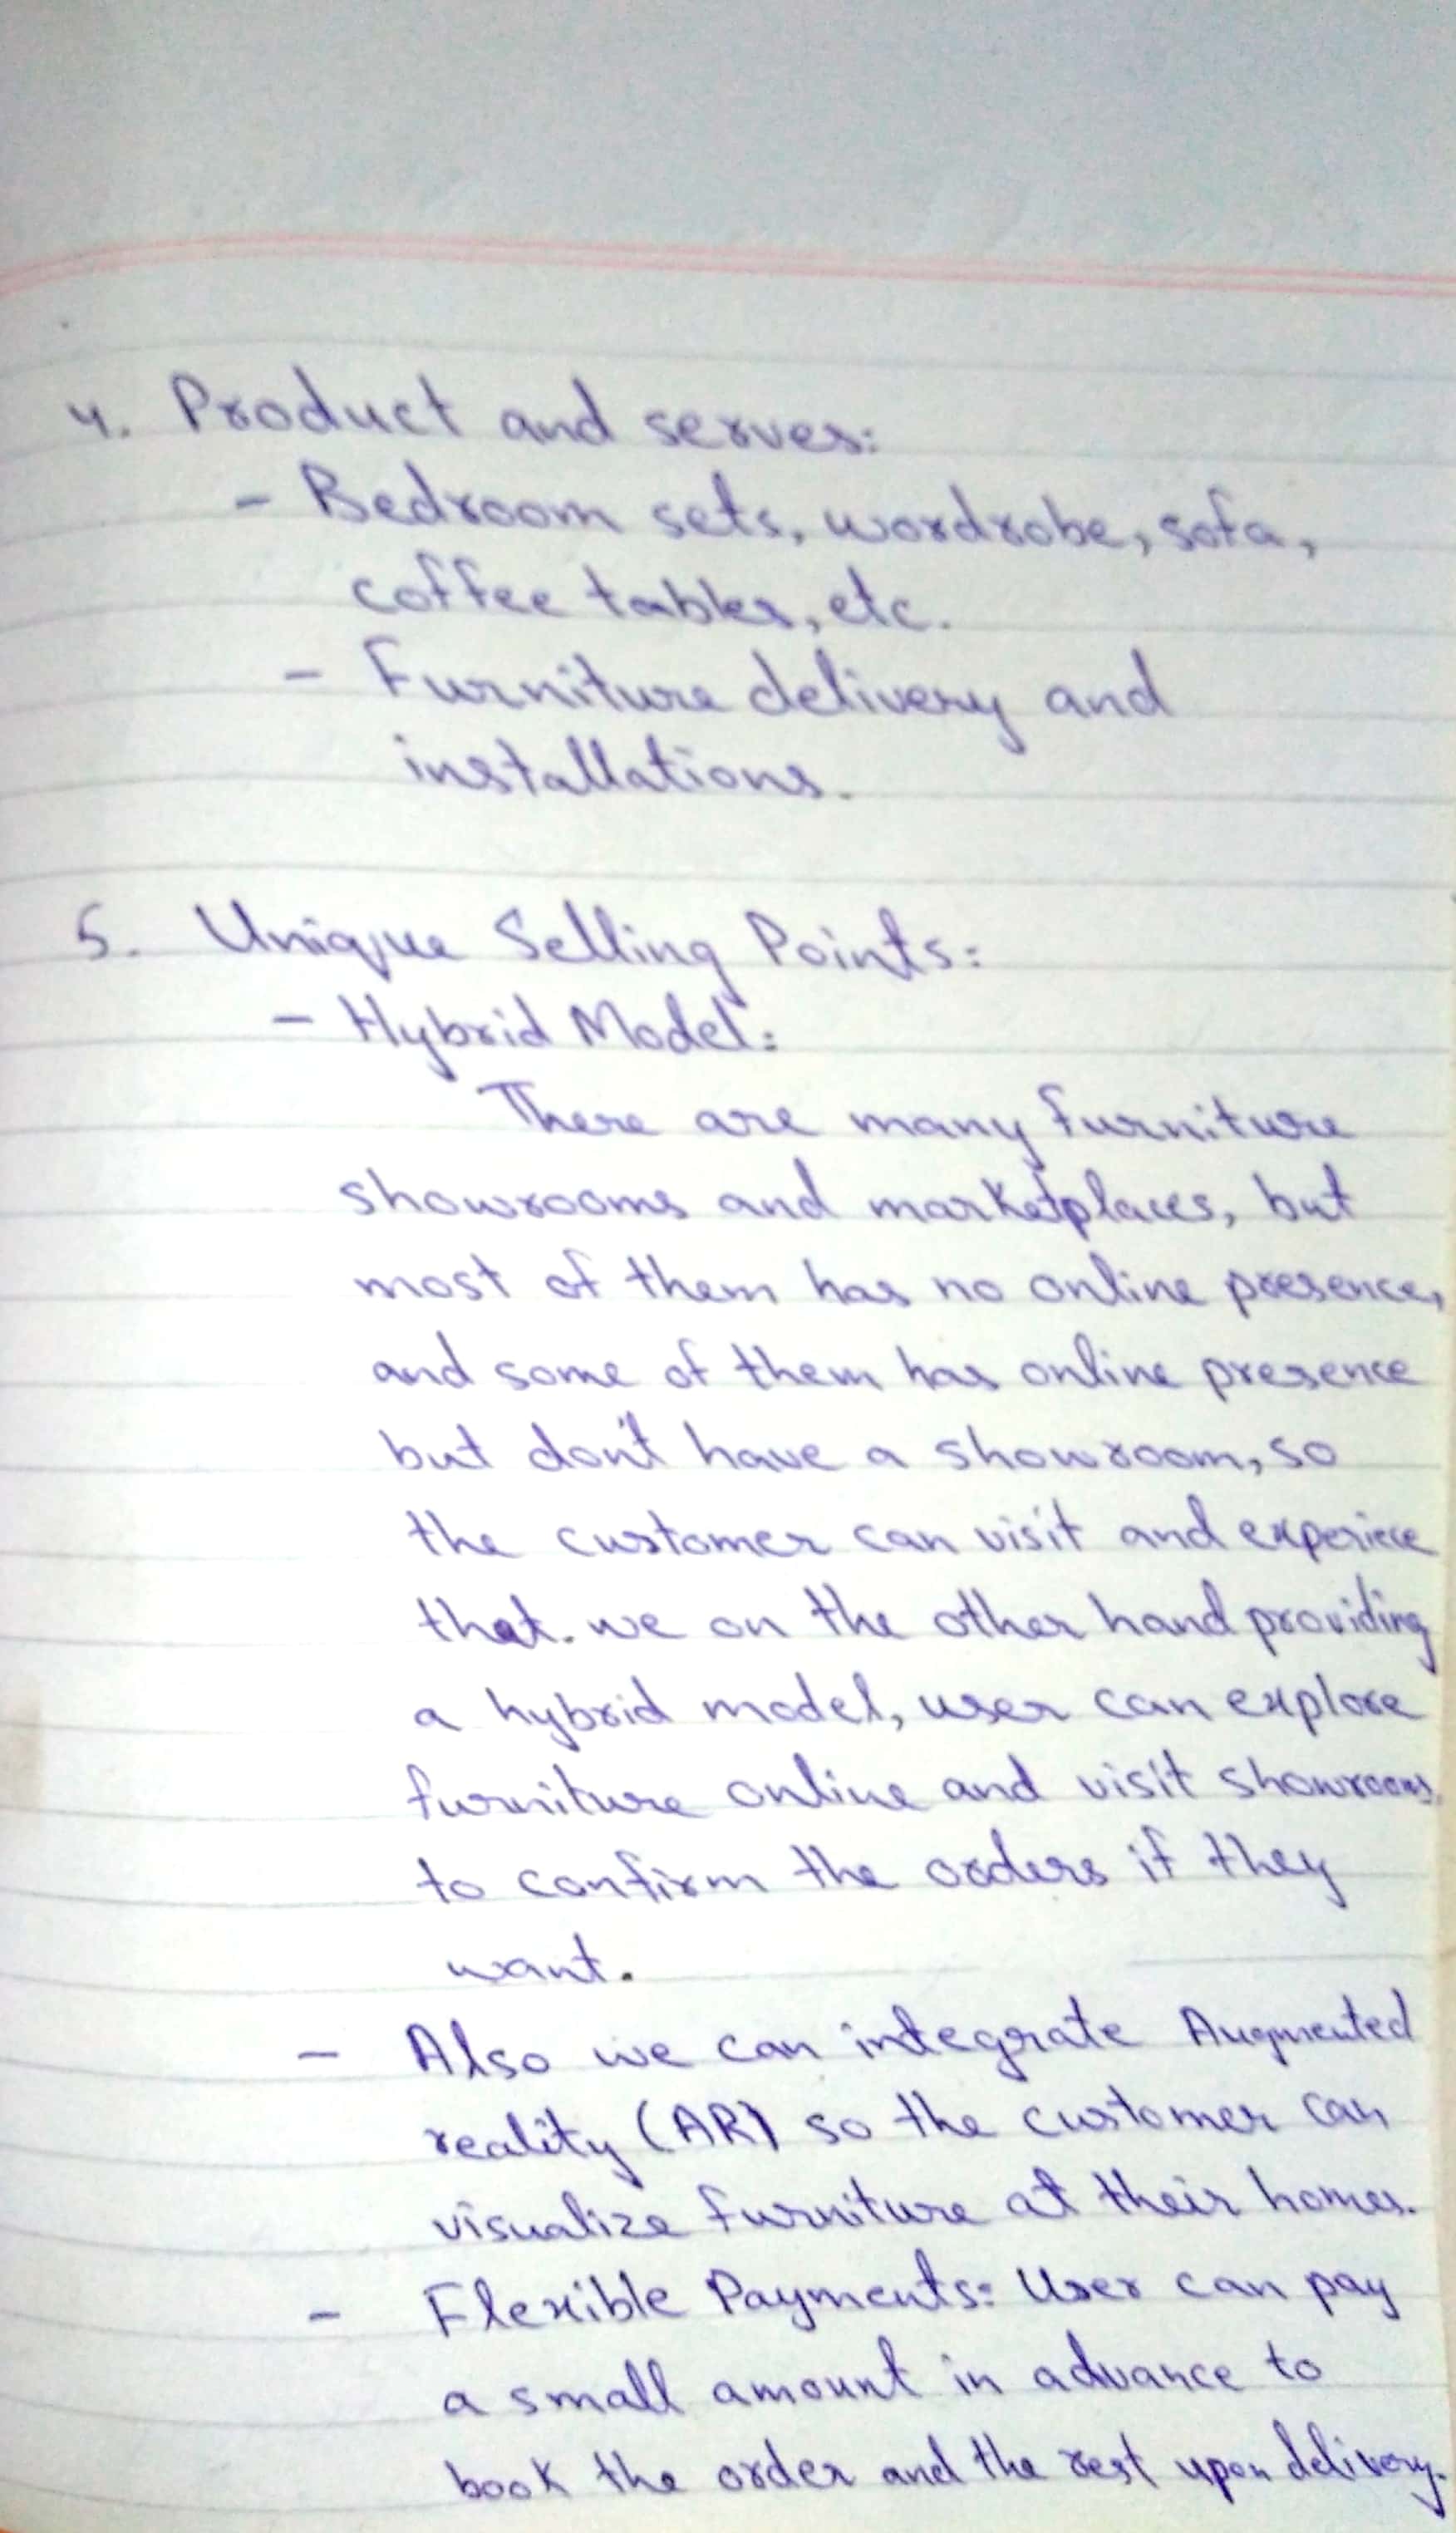 4. Product and serves:
- Bedroom sets, wordrobe, sofa,
coffee tables, etc.
- Furniture delivery and
installations.
5. Unique Selling Points:
- Hybrid Model:
There are many furniture
showrooms and marketplaces, but
most of them has no online presence,
and some of them has online presence
but don't have a showroom, so
the customer can visit and experiece
that. we on the other hand providing
a hybrid model, user can explore
furniture online and visit showrooms
to confirm the orders if they
want.
- Also we can integrate Augmented
reality (AR) so the customer can
visualize furniture at their homes.
- Flexible Payments: User can pay
a small amount in advance to
book the order and the rest upon delivery.